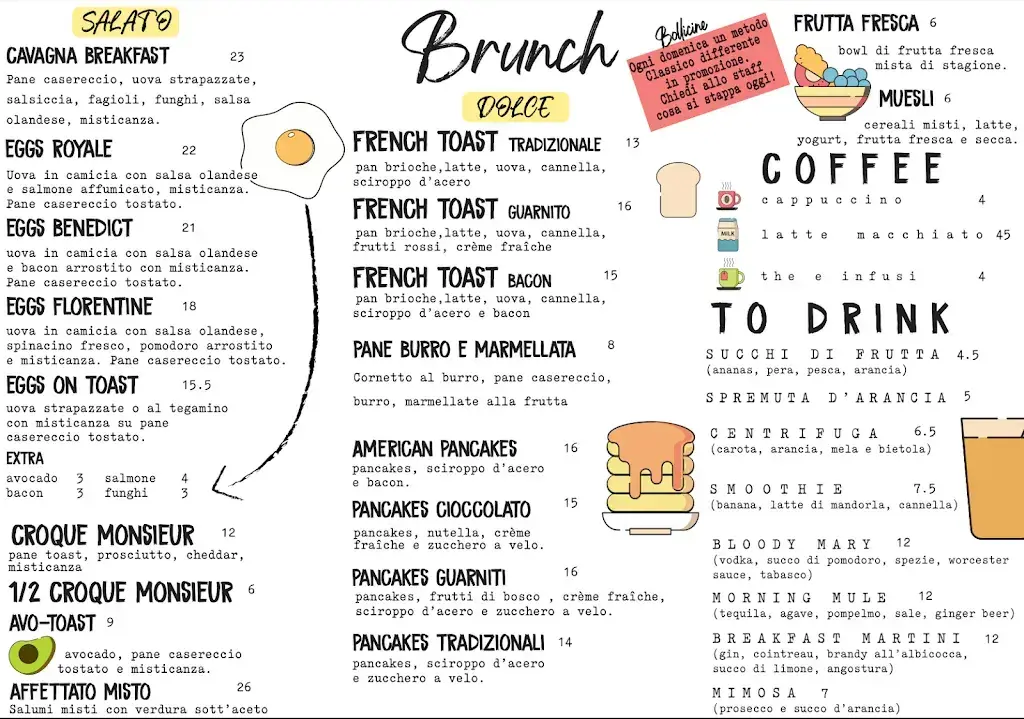 SALATO
CAVAGNA BREAKFAST 23
Pane casereccio, uova strapazzate,
salsiccia, fagioli, funghi, salsa
olandese, misticanza.
EGGS ROYALE 22
Uova in camicia con salsa olandese
e salmone affumicato, misticanza.
Pane casereccio tostato.
EGGS BENEDICT 21
uova in camicia con salsa olandese
e bacon arrostito con misticanza.
Pane casereccio tostato.
EGGS FLORENTINE 18
uova in camicia con salsa olandese,
spinacino fresco, pomodoro arrostito
e misticanza. Pane casereccio tostato.
EGGS ON TOAST 15.5
uova strapazzate o al tegamino
con misticanza su pane
casereccio tostato.
EXTRA
avocado 3 salmone 4
bacon 3 funghi 3
CROQUE MONSIEUR 12
pane toast, prosciutto, cheddar,
misticanza
1/2 CROQUE MONSIEUR 6
AVO-TOAST 9
avocado, pane casereccio
tostato e misticanza.
AFFETTATO MISTO 26
Salumi misti con verdura sott'aceto
Brunch
DOLCE
FRENCH TOAST TRADIZIONALE 13
pan brioche,latte, uova, cannella,
sciroppo d'acero
FRENCH TOAST GUARNITO 16
pan brioche,latte, uova, cannella,
frutti rossi, crème fraîche
FRENCH TOAST BACON 15
pan brioche,latte, uova, cannella,
sciroppo d'acero e bacon
PANE BURRO E MARMELLATA 8
Cornetto al burro, pane casereccio,
burro, marmellate alla frutta
AMERICAN PANCAKES 16
pancakes, sciroppo d'acero
e bacon.
PANCAKES CIOCCOLATO 15
pancakes, nutella, crème
fraîche e zucchero a velo.
PANCAKES GUARNITI 16
pancakes, frutti di bosco , crème fraîche,
sciroppo d'acero e zucchero a velo.
PANCAKES TRADIZIONALI 14
pancakes, sciroppo d'acero
e zucchero a velo.
Bollicine
Ogni domenica un metodo
Classico differente
in promozione.
Chiedi allo staff
cosa si stappa oggi!
FRUTTA FRESCA 6
bowl di frutta fresca
mista di stagione.
MUESLI 6
cereali misti, latte,
yogurt, frutta fresca e secca.
COFFEE
cappuccino 4
MILK
latte macchiato 45
the e infusi 4
TO DRINK
SUCCHI DI FRUTTA 4.5
(ananas, pera, pesca, arancia)
SPREMUTA D'ARANCIA 5
CENTRIFUGA 6.5
(carota, arancia, mela e bietola)
SMOOTHIE 7.5
(banana, latte di mandorla, cannella)
BLOODY MARY 12
(vodka, succo di pomodoro, spezie, worcester
sauce, tabasco)
MORNING MULE 12
(tequila, agave, pompelmo, sale, ginger beer)
BREAKFAST MARTINI 12
(gin, cointreau, brandy all'albicocca,
succo di limone, angostura)
MIMOSA 7
(prosecco e succo d'arancia)